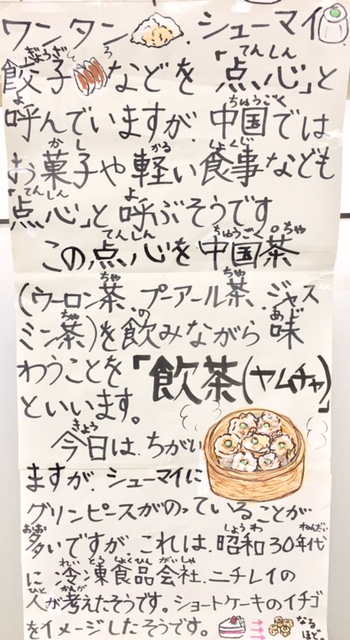 ワンタン、シューマイ
餃子などを「点心」と
呼んでいますが、中国では
お菓子や軽い食事なども
「点心」と呼ぶそうです
この点心を中国茶
(ウーロン茶、プーアール茶、ジャス
ミン茶)を飲みながら味
わうことを「飲茶(ヤムチャ)」
といいます。
今日は、ちがい
ますが、シューマイに
グリンピースがのっていることが
多いですが、これは、昭和30年代
に冷凍食品会社、ニチレイの
人が考えたそうです。ショートケーキのイチゴ
をイメージしたそうです。
なる。
ほど。